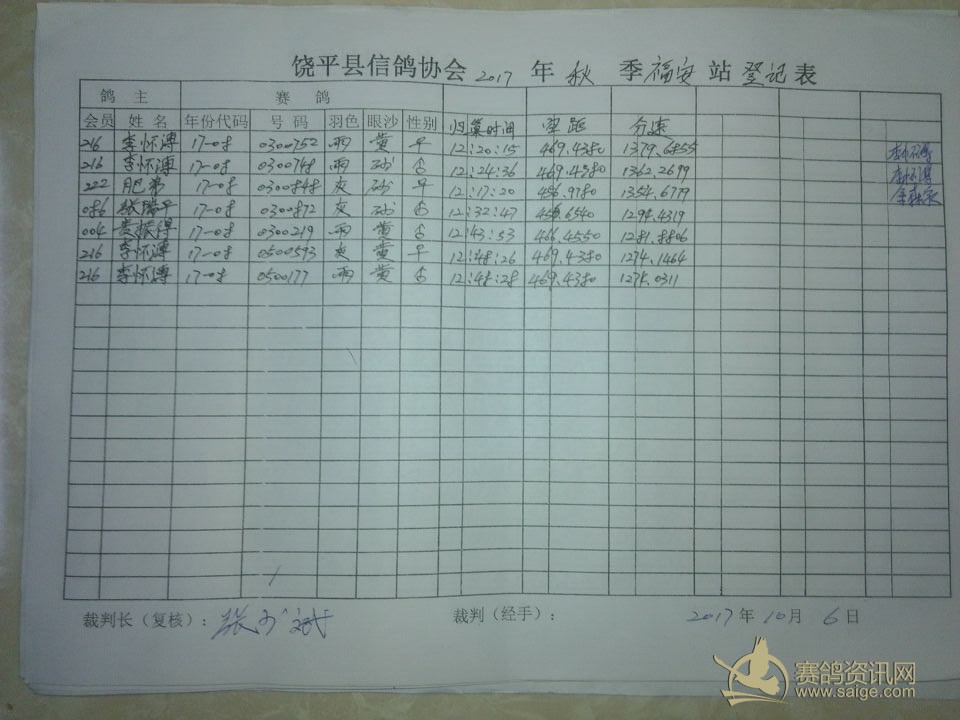 饶平县信鸽协会 2017 年 秋 季 福安 站 登记 表
鸽 主 赛 鸽
会员 姓 名 年份代码 号 码 羽色 眼沙 性别 归巢时间 空距 分速
216 李怀溥 17-08 0300752 雨 黄 平 12:20:15 469.4380 1379.6855
216 李怀溥 17-08 0300748 雨 砂 合 12:24:36 469.4380 1362.2699
222 肥弟 17-08 0300848 灰 砂 平 12:17:20 456.9780 1354.6719
086 张瑞平 17-08 0300872 灰 砂 合 12:32:47 6540 1294.4319
004 17-08 0300219 雨 黄 合 12:43:53 466.4550 1281.8806
216 李怀溥 17-08 0500593 灰 黄 平 12:48:26 469.4380 1274.1464
216 李怀溥 17-08 0500177 雨 黄 合 12:48:28 469.4380 0311
裁判长（复核）： 裁判（经手）： 2017 年 10 月 6 日
赛鸽资讯网
www.saige.com